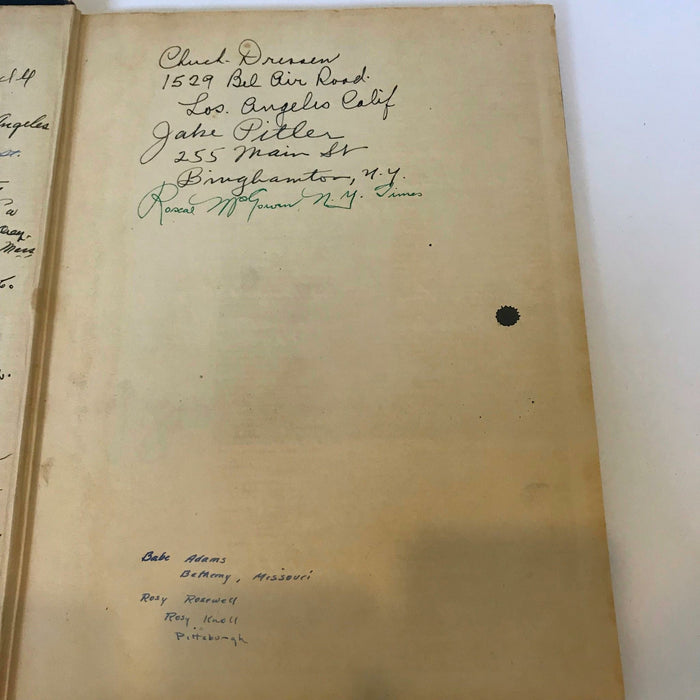 Angeles
Mass
Chuck Dressen
1529 Bel Air Road.
Los. Angeles Calif
Jake Pitler
255 Main St
Binghamton, N.Y.
Roscoe McGowen N.Y. Times
Babe Adams
Bethany, Missouri
Rosy Rosewell
Rosy Knoll
Pittsburgh